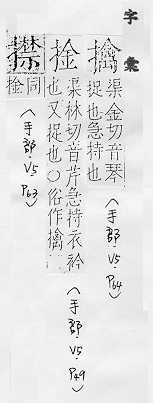 字彙
擒
渠金切音琴
捉也急持也
(手部.V5.P64)
捦
渠林切音芹急持衣衿
也又捉也○俗作擒
(手部.V5.P49)
㩒
同
捦
(手部.V5.P63)